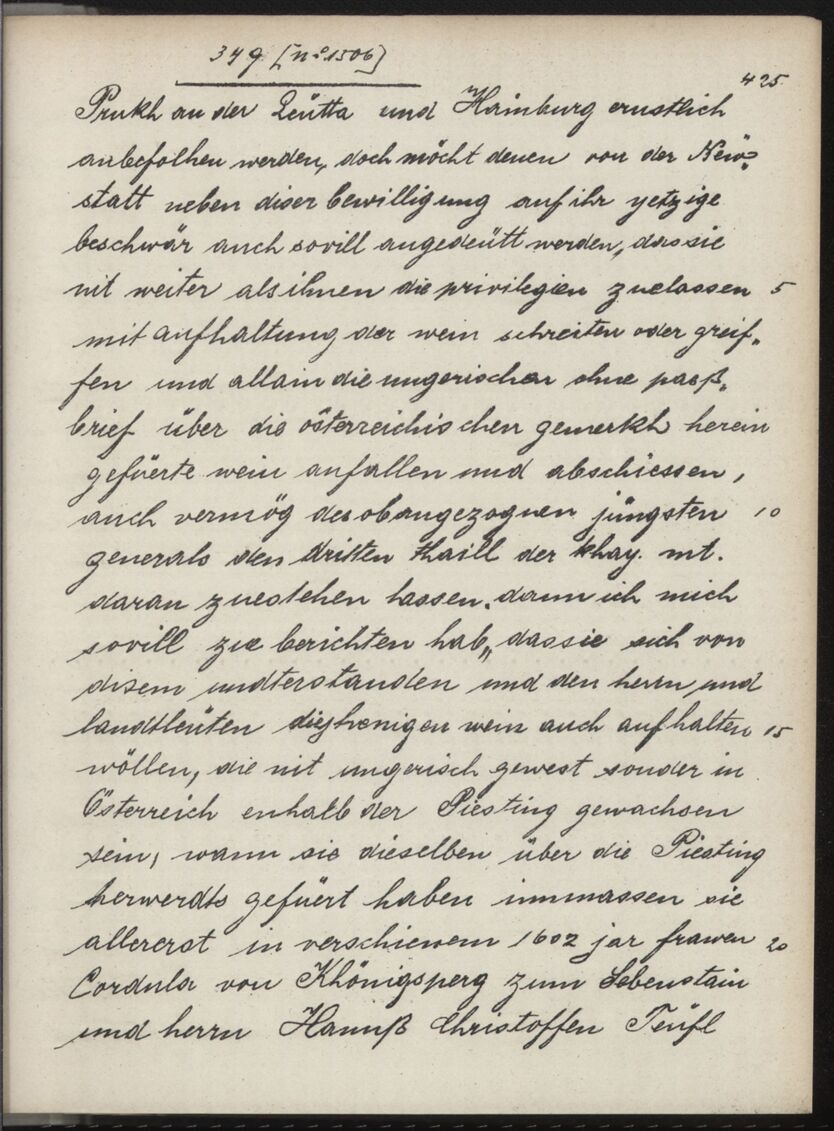 349 [nº 1506]
425
Prukh an der Leütta und Hainburg ernstlich
anbefolhen werden, doch möcht denen von der Neü-
statt neben diser bewilligung auf ihr yetzige
beschwär auch sovill angedeütt werden, das sie
nit weiter als ihnen die privilegien zuelassen 5
mit aufhaltung der wein schreiten oder greif-
fen und allain die ungerischen ohne paß-
brief über die österreichischen gemerkh herein
gefüerte wein anfallen und abschiessen,
auch vermög des obangezognen jüngsten 10
generals den dritten thaill der khay. mt.
daran zuestehen lassen, dann ich mich
sovill zue berichten hab, das sie sich von
disem undterstanden und den herrn und
landtleüten diejhenigen wein auch aufhalten 15
wöllen, die nit ungerisch gewest sonder in
Österreich enhalb der Piesting gewachsen
sein, wann sie dieselben über die Piesting
herwerdts gefüert haben inmassen sie
allererst in verschienem 1602 jar frawen 20
Cordula von Khönigsperg zum Sebenstain
und herrn Hannß Christoffen Teüfl